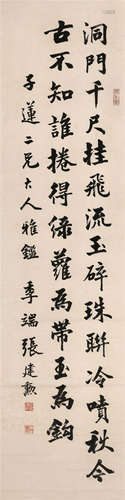 洞門千尺挂飛流玉碎珠聯冷噴秋今
古不知誰捲得綠蘿為帶玉為鈎
子蓮二兄大人雅鑑 季端張建勳